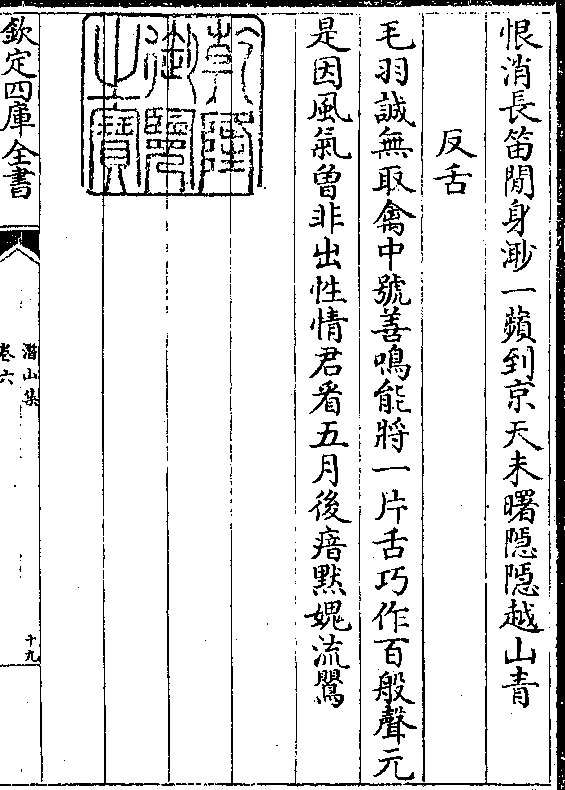 恨消長笛閒身渺一蘋到京天未曙隠隠越山青
反舌
毛羽誠無取禽中號善鳴能將一片舌巧作百般聲元
是因風氣曾非出性情君看五月後瘖默媿流鶯
乾隆御覽之寶
欽定四庫全書
潛山集
卷六
十九